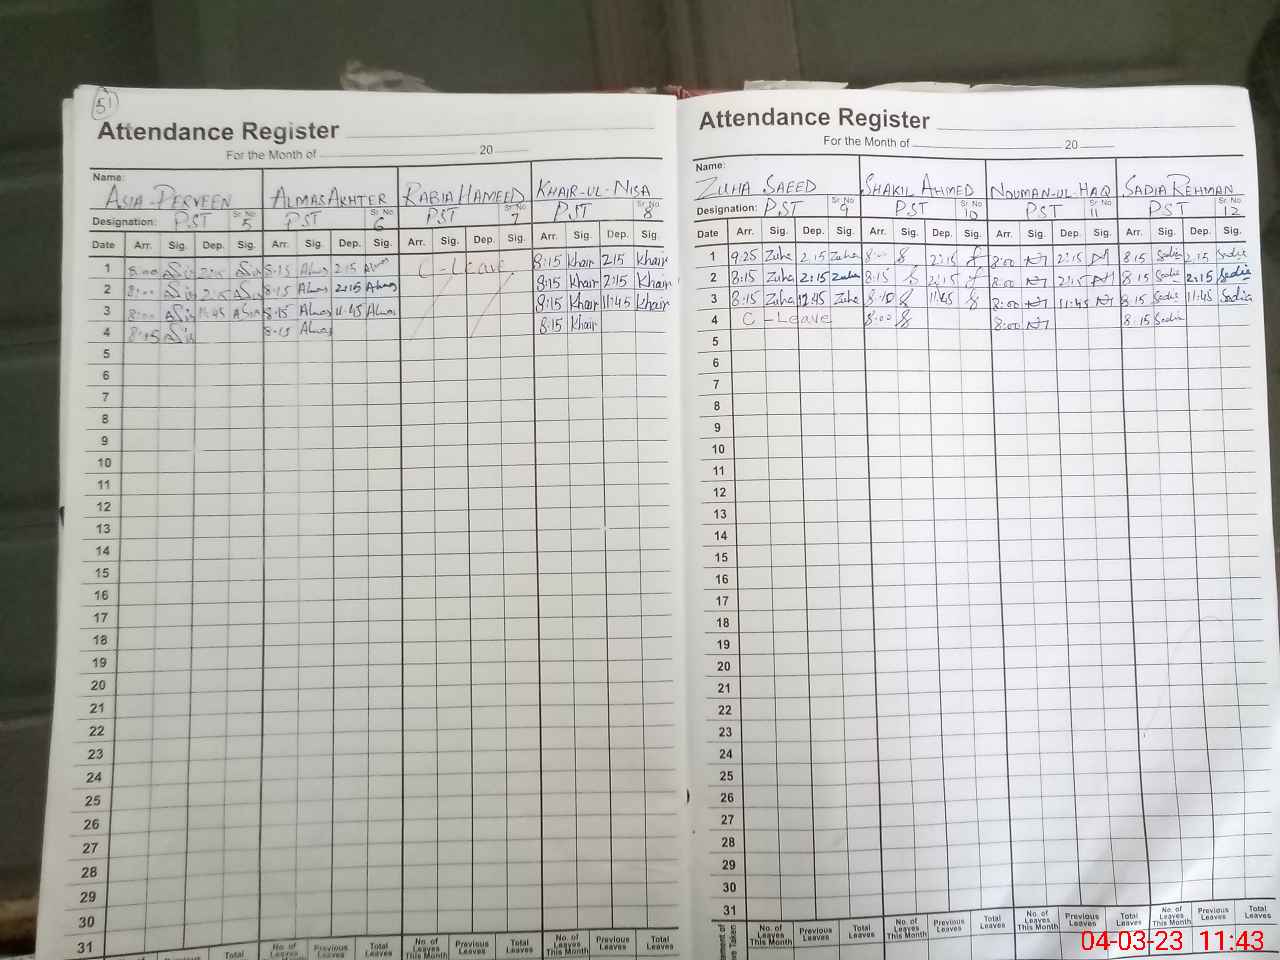 51
Attendance Register
For the Month of 20
Name:
ASIA PERVEEN ALMAS AKHTER RABIA HAMEED KHAIR-UL-NISA
Designation: PST Sr. No. 5 PST Sr. No. 6 PST Sr. No. 7 PST Sr. No. 8
Date Arr. Sig. Dep. Sig. Arr. Sig. Dep. Sig. Arr. Sig. Dep. Sig. Arr. Sig. Dep. Sig.
1 8:00 2:15 8:15 Almas 2:15 Almas C-Leave 8:15 Khair 2:15 Khair
2 8:00 2:15 8:15 Almas 2:15 Almas 8:15 Khair 2:15 Khair
3 8:00 11:45 8:15 Almas 11:45 Almas 8:15 Khair 11:45 Khair
4 8:15 Almas 8:15 Khair
5
6
7
8
9
10
11
12
13
14
15
16
17
18
19
20
21
22
23
24
25
26
27
28
29
30
31
No. of Leaves This Month Previous Leaves Total Leaves No. of Leaves This Month Previous Leaves Total Leaves No. of Leaves This Month Previous Leaves Total Leaves
Attendance Register
For the Month of 20
Name:
ZUHA SAEED SHAKIL AHMED NOUMAN-UL-HAQ SADIA REHMAN
Designation: PST Sr. No. 9 PST Sr. No. 10 PST Sr. No. 11 PST Sr. No. 12
Date Arr. Sig. Dep. Sig. Arr. Sig. Dep. Sig. Arr. Sig. Dep. Sig. Arr. Sig. Dep. Sig.
1 9:25 Zuha 2:15 Zuha 8:00 2:15 8:00 2:15 8:15 Sadia 2:15 Sadia
2 8:15 Zuha 2:15 Zuha 8:15 2:15 8:00 2:15 8:15 Sadia 2:15 Sadia
3 8:15 Zuha 12:45 Zuha 8:10 11:45 8:00 11:45 8:15 Sadia 11:45 Sadia
4 C-Leave 8:00 8:00 8:15 Sadia
5
6
7
8
9
10
11
12
13
14
15
16
17
18
19
20
21
22
23
24
25
26
27
28
29
30
31
No. of Leaves This Month Previous Leaves Total Leaves No. of Leaves This Month Previous Leaves Total Leaves No. of Leaves This Month Previous Leaves Total Leaves No. of Leaves This Month Previous Leaves Total Leaves
04-03-23 11:43